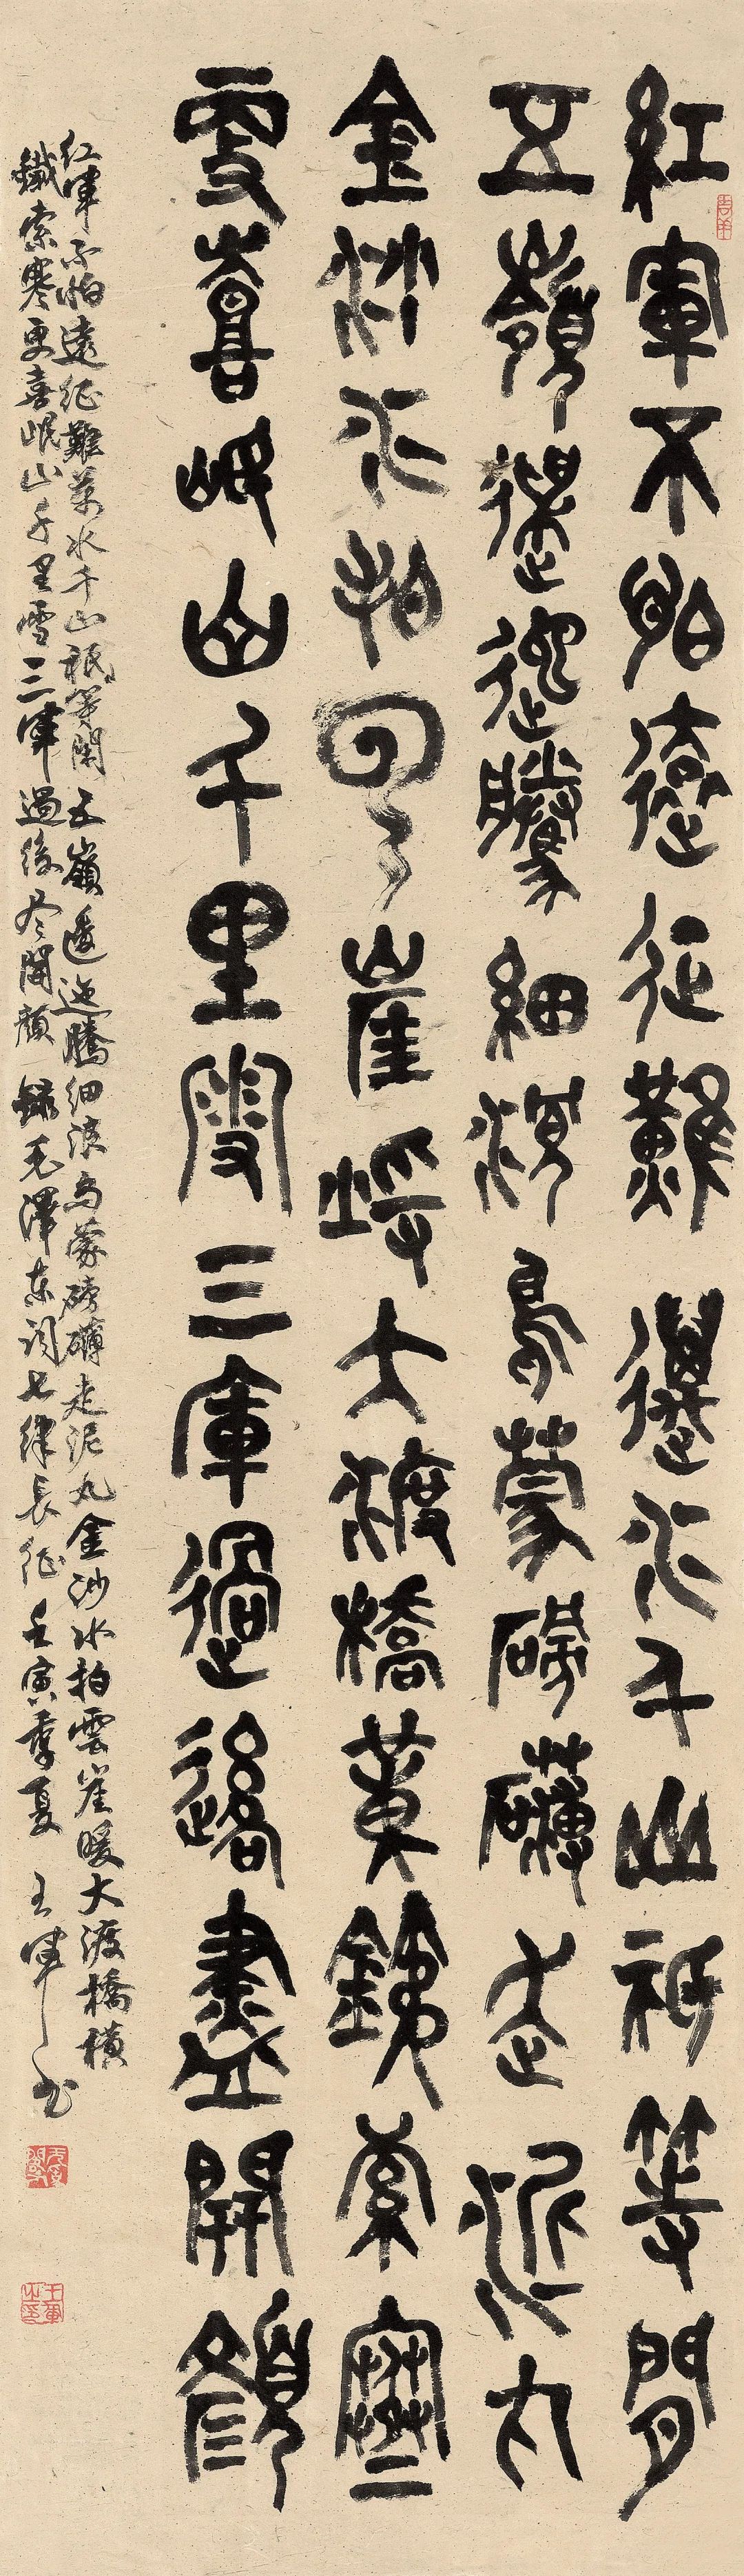 紅軍不怕遠征難萬水千山祇等閒
五嶺逶迤騰細浪烏蒙磅礴走泥丸
金沙水拍雲崖暖大渡橋橫鐵索寒
更喜岷山千里雪三軍過後盡開顏
红軍不怕遠征難萬水千山祇等閑五嶺逶迤騰細浪烏蒙磅礴走泥丸金沙水拍雲崖暖大渡橋橫
鐵索寒更喜岷山千里雪三軍過後尽開顏錄毛澤東詞七律長征壬寅季夏王軍书